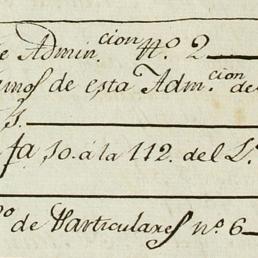 e Admin.cion Nº. 2
amos de esta Adm.cion de
s.
fa 10. á la 112. del L.
º de Particulares nº. 6